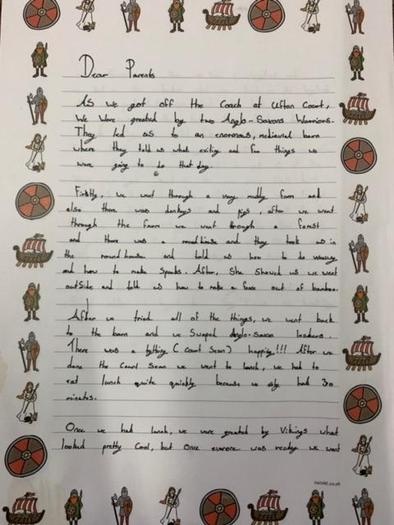 Dear Parents
As we got off the Coach at Ufton Court,
We were greated by two Anglo-Saxons Warriors.
They led us to an enormous, medieval barn
where they told us what exiting and fun things we
were going to do that day.
Firstly, we went through a very muddy farm and
also there was donkeys and pigs, after we went
through the farm we went through a forest
and there was a roundhouse and they took us in
the roundhouse and told us how to do weaving
and how to make After, She Showed us we went
outside and told us how to make a out of bamboo.
After we tried all of the things, we went back
to the barn and we Swaped Anglo-Saxon leaders.
There was a (Court Sean) happing!!! After we
done the Court Sean we went to lunch, we had to
eat lunch quite quickly because we only had 30
minutes.
Once we had lunch, we were greated by Vikings what
looked pretty Cool, but Once was ready we went